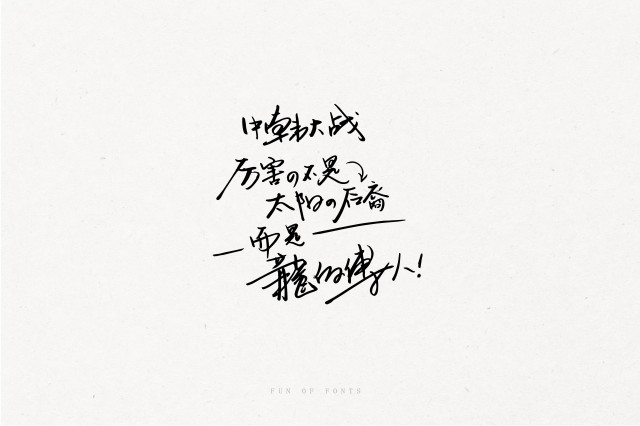 中韩大战
厉害の不是
太阳の后裔
而是
龍的傳人!
PEN OF FONTS